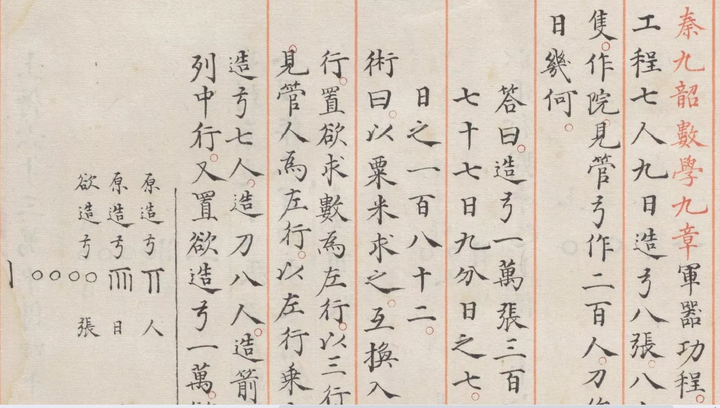 秦九韶數學九章軍器功程。
工程七人九日造弓八張。八
隻。作院見管弓作二百人。刀作
日幾何。
答曰。造弓一萬張三百
七十七日九分日之七。
日之一百八十二。
術曰。以粟米求之。互換入
行。置欲求數為左行。以三行
見管人為左行。以左行乘
造弓七人。造刀八人。造箭
列中行。又置欲造弓一萬
原造弓𝍦人
原造弓𝍨日
欲造弓|○○○○張